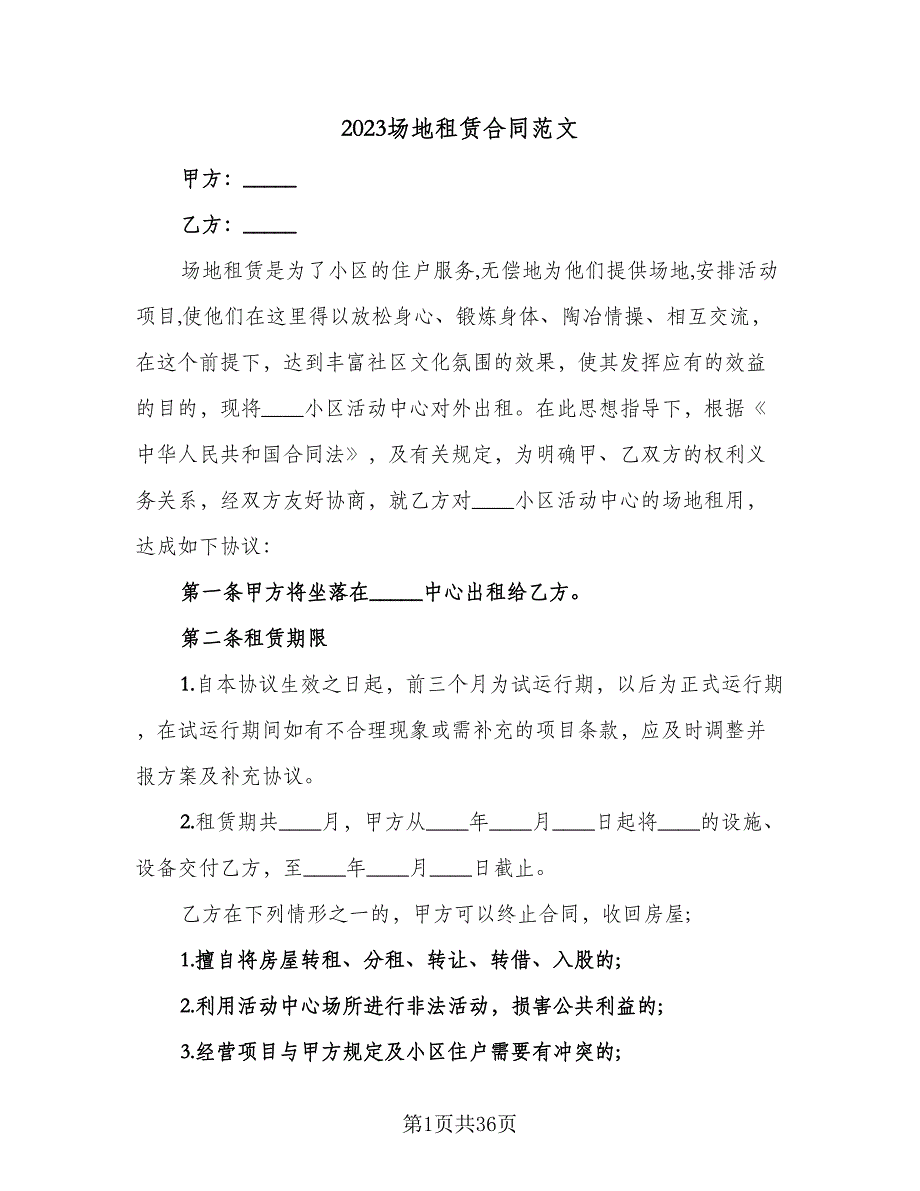 2023场地租赁合同范文
甲方：_____
乙方：_____
场地租赁是为了小区的住户服务,无偿地为他们提供场地,安排活动
项目,使他们在这里得以放松身心、锻炼身体、陶冶情操、相互交流，
在这个前提下，达到丰富社区文化氛围的效果，使其发挥应有的效益
的目的，现将____小区活动中心对外出租。在此思想指导下，根据《
中华人民共和国合同法》，及有关规定，为明确甲、乙双方的权利义
务关系，经双方友好协商，就乙方对____小区活动中心的场地租用，
达成如下协议：
第一条甲方将坐落在_____中心出租给乙方。
第二条租赁期限
1.自本协议生效之日起，前三个月为试运行期，以后为正式运行期
，在试运行期间如有不合理现象或需补充的项目条款，应及时调整并
报方案及补充协议。
2.租赁期共____月，甲方从____年____月____日起将____的设施、
设备交付乙方，至____年____月____日截止。
乙方在下列情形之一的，甲方可以终止合同，收回房屋;
1.擅自将房屋转租、分租、转让、转借、入股的;
2.利用活动中心场所进行非法活动，损害公共利益的;
3.经营项目与甲方规定及小区住户需要有冲突的;
第1页共36页